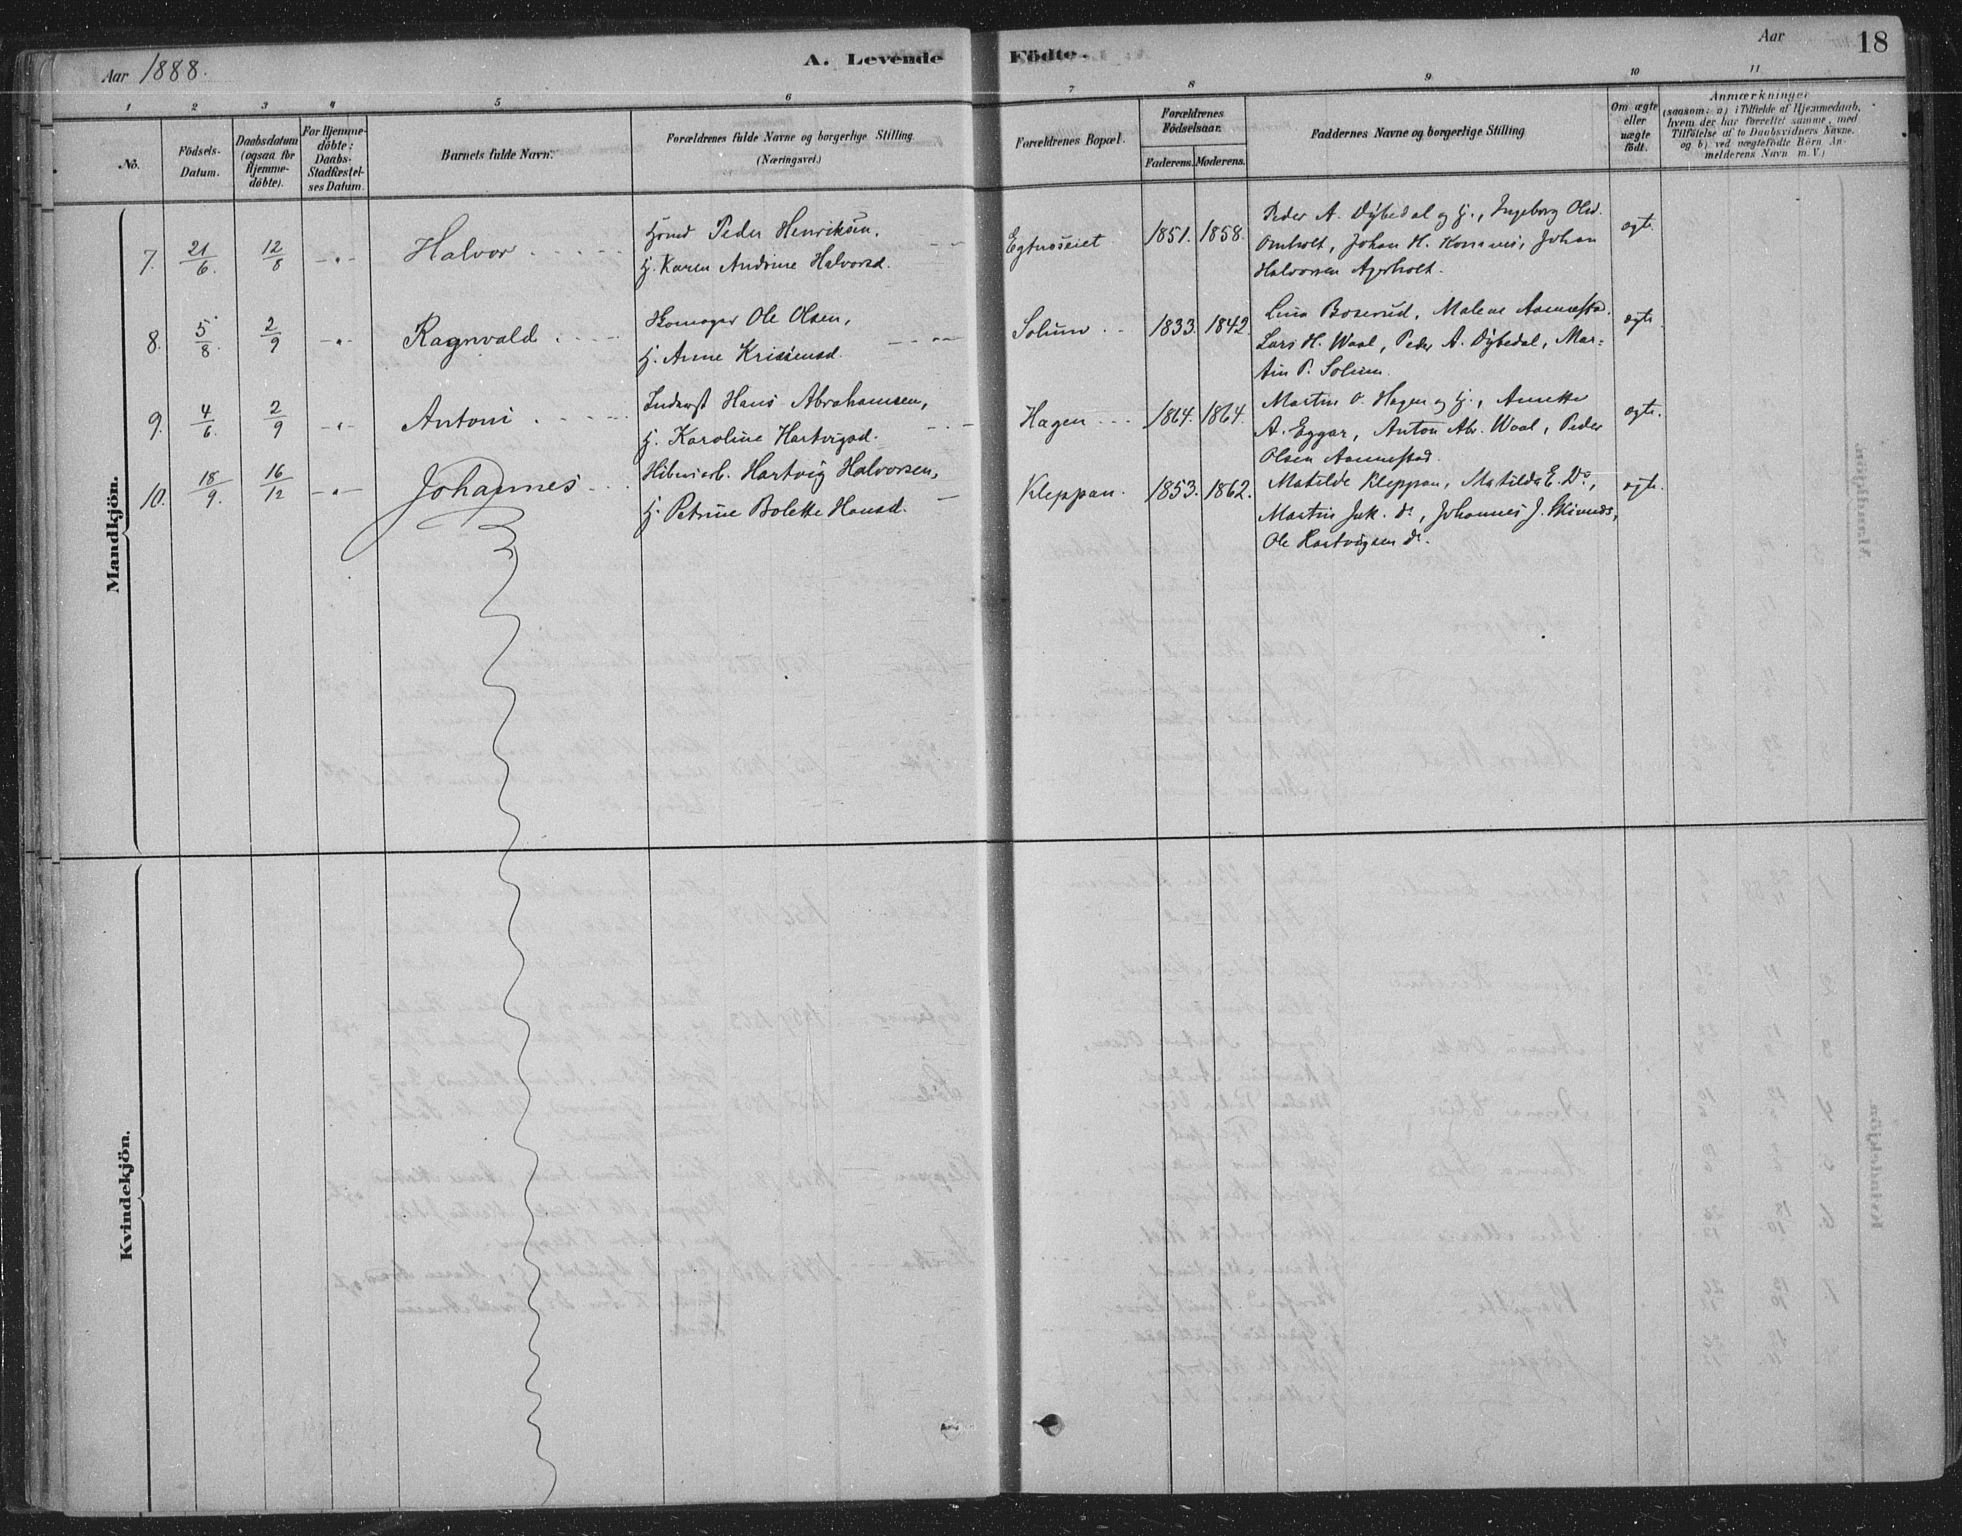 Aar 1888.
A. Levende Födte.
Aar 18
1 2 3 4 5 6 7 8 9 10 11
No.
Födsels-
Datum.
Daabsdatum
(ogsaa for
Hjemme-
döbte).
For Hjemme-
döbte:
Daabs-
Stadfæstel-
ses Datum.
Barnets fulde Navn.
Forældrenes fulde Navne og borgerlige Stilling
(Næringsvei.)
Forældrenes Bopæl.
Forældrenes
Födselsaar.
Faderens. Moderens.
Faddernes Navne og borgerlige Stilling
Om ægte
eller
uægte
födt.
Anmærkninger
(saasom: a) i Tilfælde af Hjemmedaab,
hvem der har forrettet samme, med
Tilföielse af to Daabsvidners Navne.
og b) ved uægtefödte Börn An-
melderens Navn m. V.)
Mandkjön.
7. 21/6. 12/8 Halvor
Peder Henriksen,
Hj. Karen Andrine Halvorsd.
1851. 1858.
Peder A. Dybedal og Hj., Ingeborg Olsd.
Omholt, Johan H. Johan
Halvorsen Agerholt.
ægte.
8. 5/8. 2/9 Ragnvald
Skomager Ole Olsen,
Hj. Anne
Solum 1833. 1842.
Lina Malene Aamestad,
Lars H. Waal, Peder A. Dybedal, Mar-
tin P. Solum.
ægte.
9. 4/6. 2/9 Antoni
Inderst Hans Abrahamsen,
Hj. Karoline Hartvigsd.
Hagen 1864. 1864.
Martin O. Hagen og Hj., Annette
A. Eggar, Anton Abr. Waal, Peder
Olsen Aamestad.
ægte.
10. 18/9. 16/12 Johannes
Hartvig Halvorsen,
Hj. Petrine Bolette Hansd.
Kleppan. 1853. 1862.
Matilde Kleppan, Matilde E. Do,
Martin Do, Johannes J.
Ole Hartvigsen Do.
ægte.
Kvindekjön.